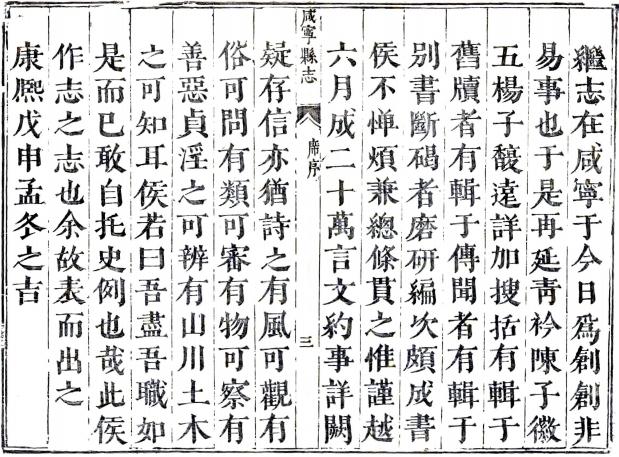 繼志在咸寧于今日爲創創非
易事也于是再延靑衿陳子徽
五楊子馥遠詳加搜括有輯于
舊牘者有輯于傳聞者有輯于
別書斷碣者磨研編次頗成書
侯不憚煩兼總條貫之惟謹越
六月成二十萬言文約事詳闕
咸寧縣志
席序
三
疑存信亦猶詩之有風可觀有
俗可問有類可審有物可察有
善惡貞淫之可辨有山川土木
之可知耳侯若曰吾盡吾職如
是而已敢自托史例也哉此侯
作志之志也余故表而出之
康熙戊申孟冬之吉